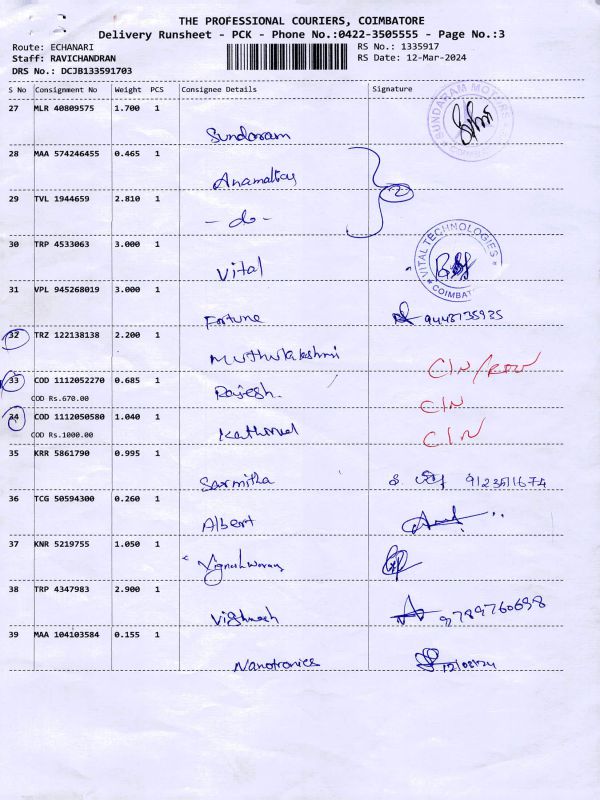 THE PROFESSIONAL COURIERS, COIMBATORE
Delivery Runsheet - PCK - Phone No.:0422-3505555 - Page No.:3
Route: ECHANARI
RS No.: 1335917
Staff: RAVICHANDRAN
RS Date: 12-Mar-2024
DRS No.: DCJB133591703
S No Consignment No Weight PCS Consignee Details Signature
27 MLR 40809575 1.700 1
SUNDARAM MOTORS
Sundaram
28 MAA 574246455 0.465 1
Anamallais
2
29 TVL 1944659 2.810 1
- do -
30 TRP 4533063 3.000 1
VITAL TECHNOLOGIES
COIMBATORE
Vital
31 VPL 945268019 3.000 1
Fortune 9443735935
32 TRZ 122138138 2.200 1
Muthulakshmi CIN/
33 COD 1112052270 0.685 1
COD Rs.670.00 Rajesh. CIN
34 COD 1112050580 1.040 1
COD Rs.1000.00 CIN
35 KRR 5861790 0.995 1
Sarmitha
36 TCG 50594300 0.260 1
Albert
37 KNR 5219755 1.050 1
38 TRP 4347983 2.900 1
Vighnesh 9789760698
39 MAA 104103584 0.155 1
Nanotronics